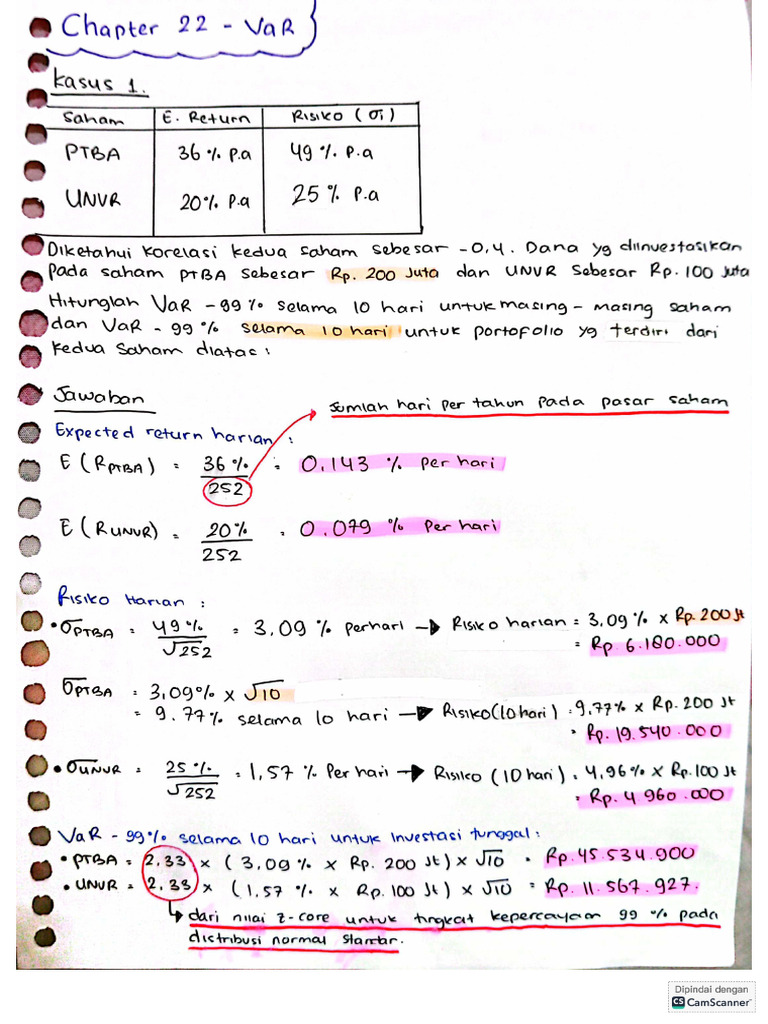 Chapter 22 - VaR
Kasus 1.
Saham E. Return Risiko (σi)
PTBA 36 % p.a 49 % p.a
UNVR 20% p.a 25 % p.a
Diketahui korelasi kedua saham sebesar -0,4. Dana yg diinvestasikan
pada saham PTBA sebesar Rp. 200 Juta dan UNVR sebesar Rp. 100 Juta
Hitunglah VaR - 99% selama 10 hari untuk masing - masing saham
dan VaR - 99 % selama 10 hari untuk portofolio yg terdiri dari
kedua saham diatas :
Jawaban
Jumlah hari per tahun pada pasar saham
Expected return harian :
E (RPTBA) = 36 % / 252 = 0.143 % per hari
E (RUNVR) = 20% / 252 = 0.079 % Per hari
Risiko Harian :
• σPTBA = 49 % / √252 = 3,09 % perhari → Risiko harian = 3,09 % x Rp. 200 jt
= Rp. 6.180.000
σPTBA = 3,09% x √10
= 9.77% selama 10 hari → Risiko (10 hari) = 9,77% x Rp. 200 Jt
= Rp. 19.540.000
• σUNVR = 25 % / √252 = 1,57 % Per hari → Risiko (10 hari) = 4,96% x Rp. 100 Jt
= Rp. 4.960.000
VaR - 99% selama 10 hari untuk Investasi tunggal :
• PTBA = 2,33 x ( 3,09 % x Rp. 200 Jt) x √10 = Rp. 45.534.900
• UNUR = 2,33 x (1,57 % x Rp. 100 Jt) x √10 = Rp. 11.567.927.
dari nilai z-core untuk tingkat kepercayaan 99 % pada
distribusi normal standar.
Dipindai dengan
CS CamScanner